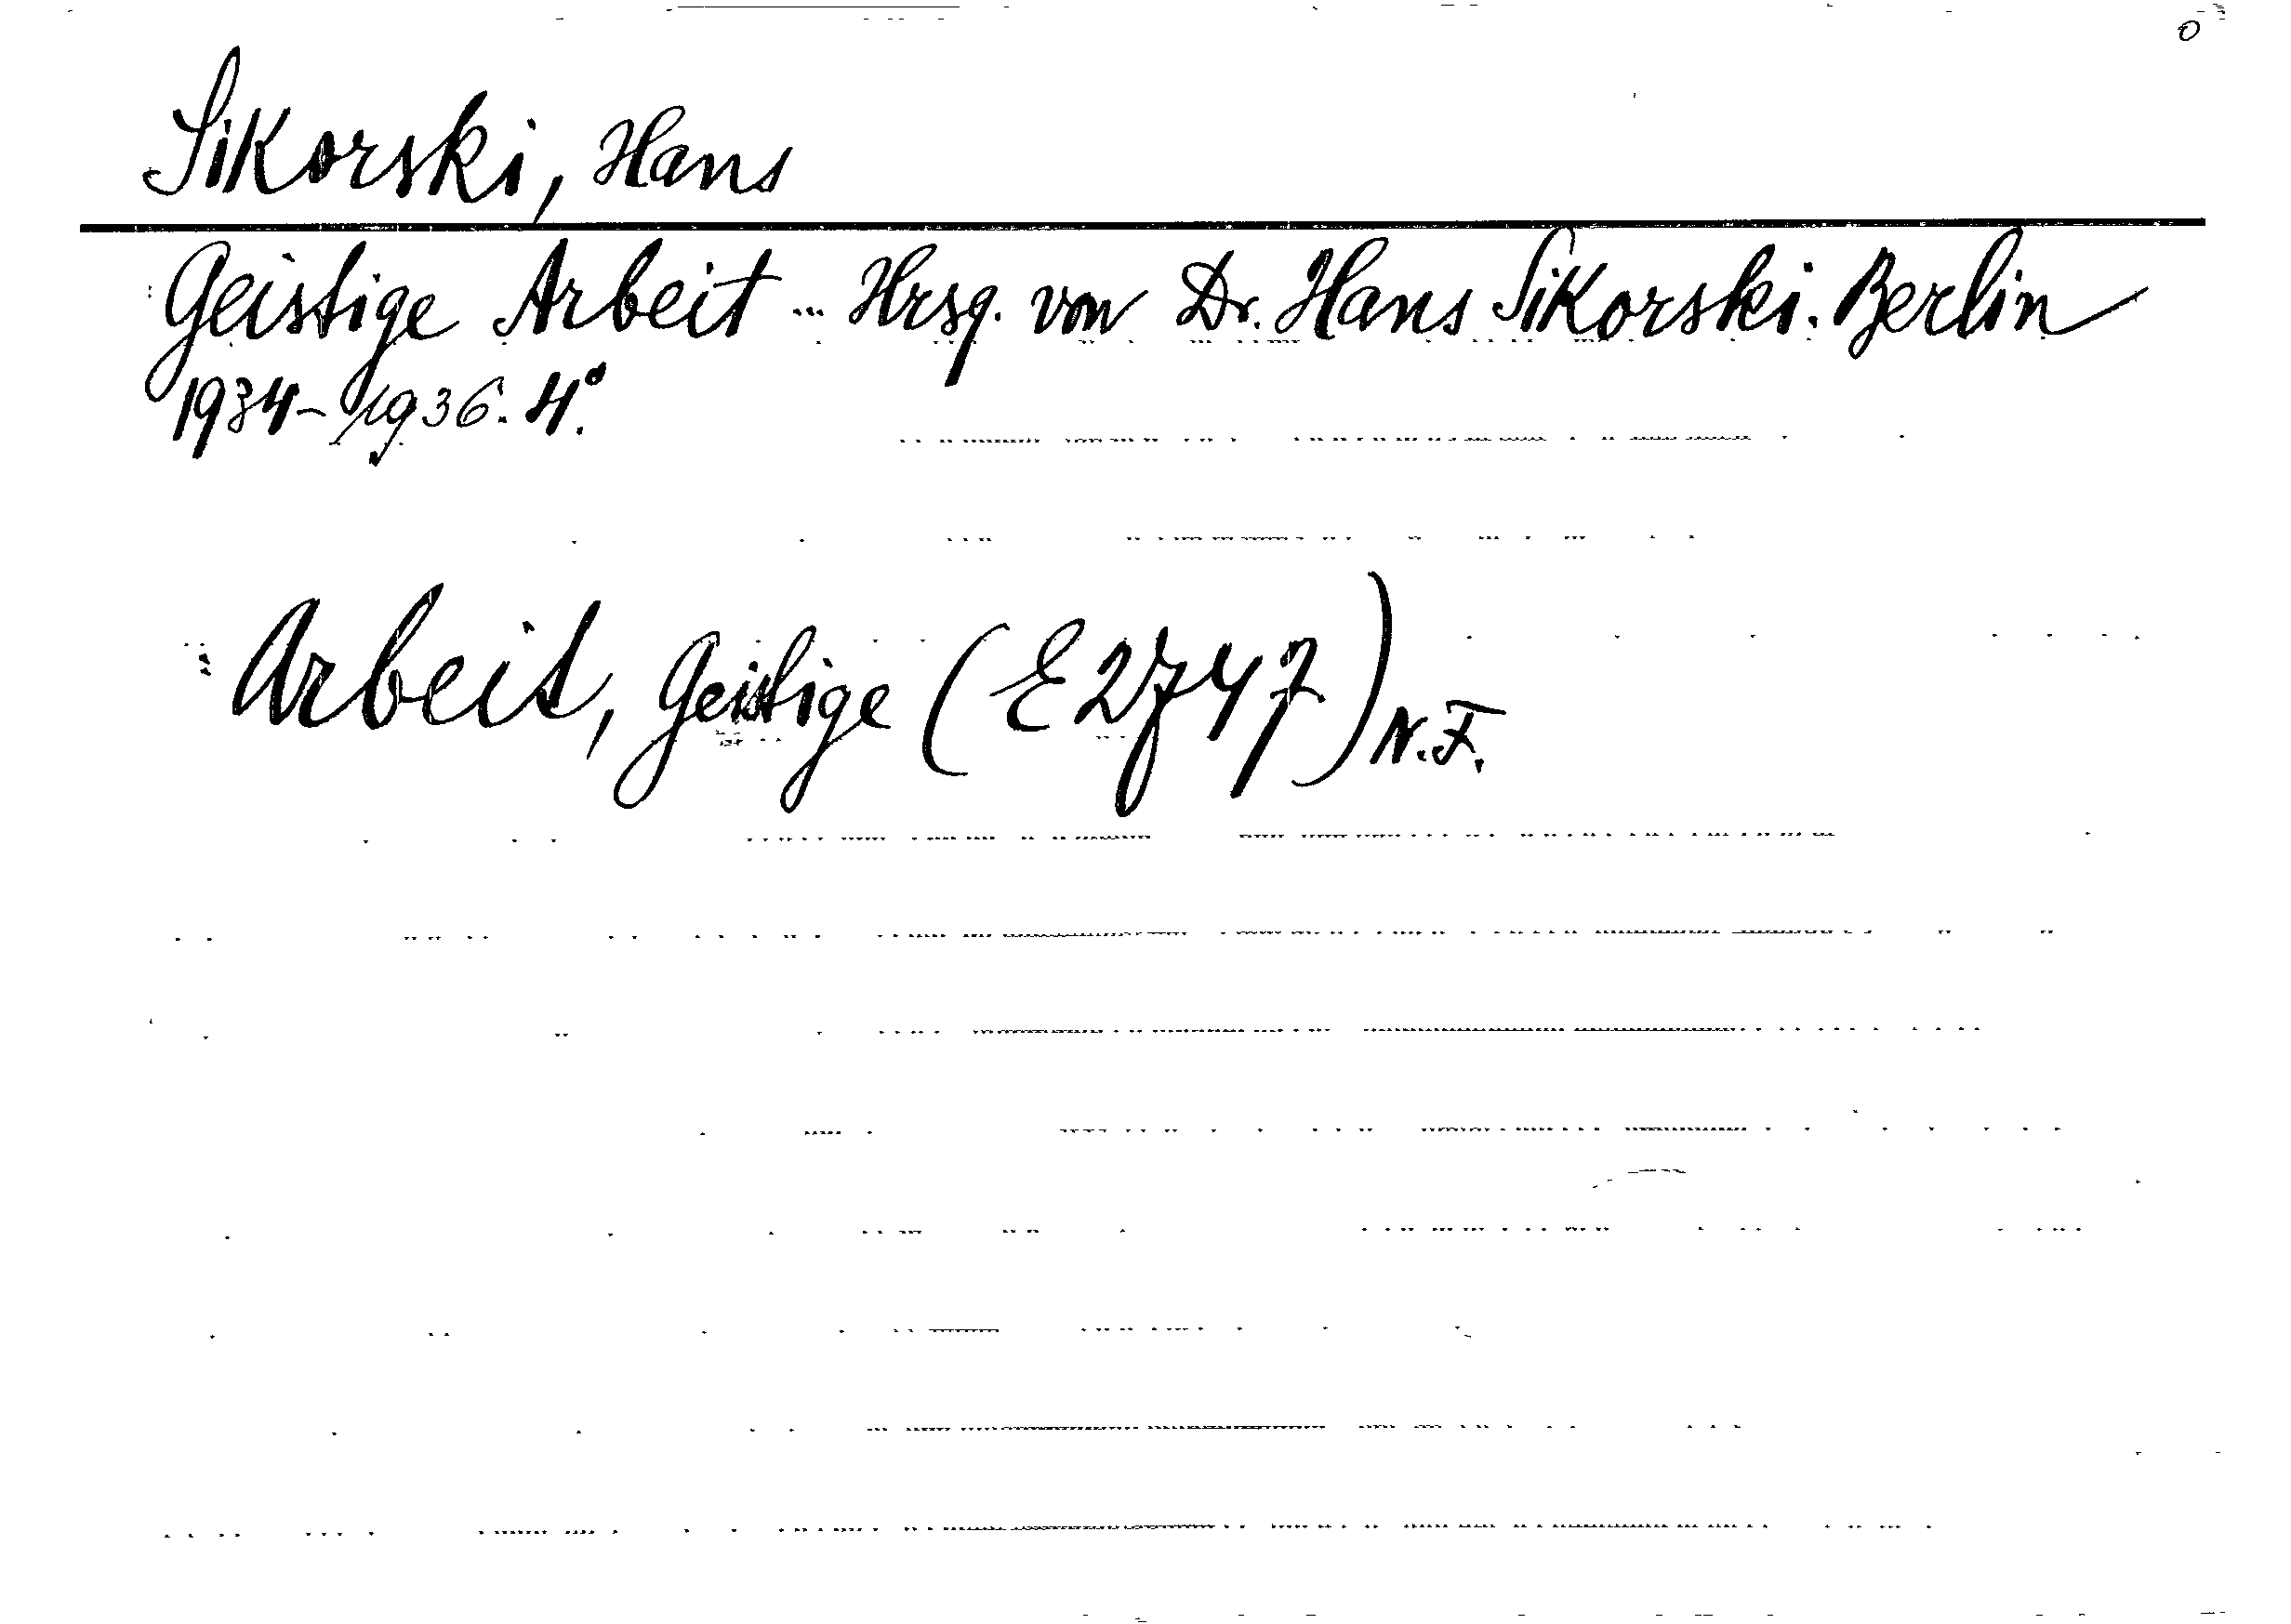 Sikorski, Hans
Geistige Arbeit ... Hrsg. von Dr. Hans Sikorski. Berlin
1934-1936. 4°.
Arbeit, Geistige (E2747) N.F.